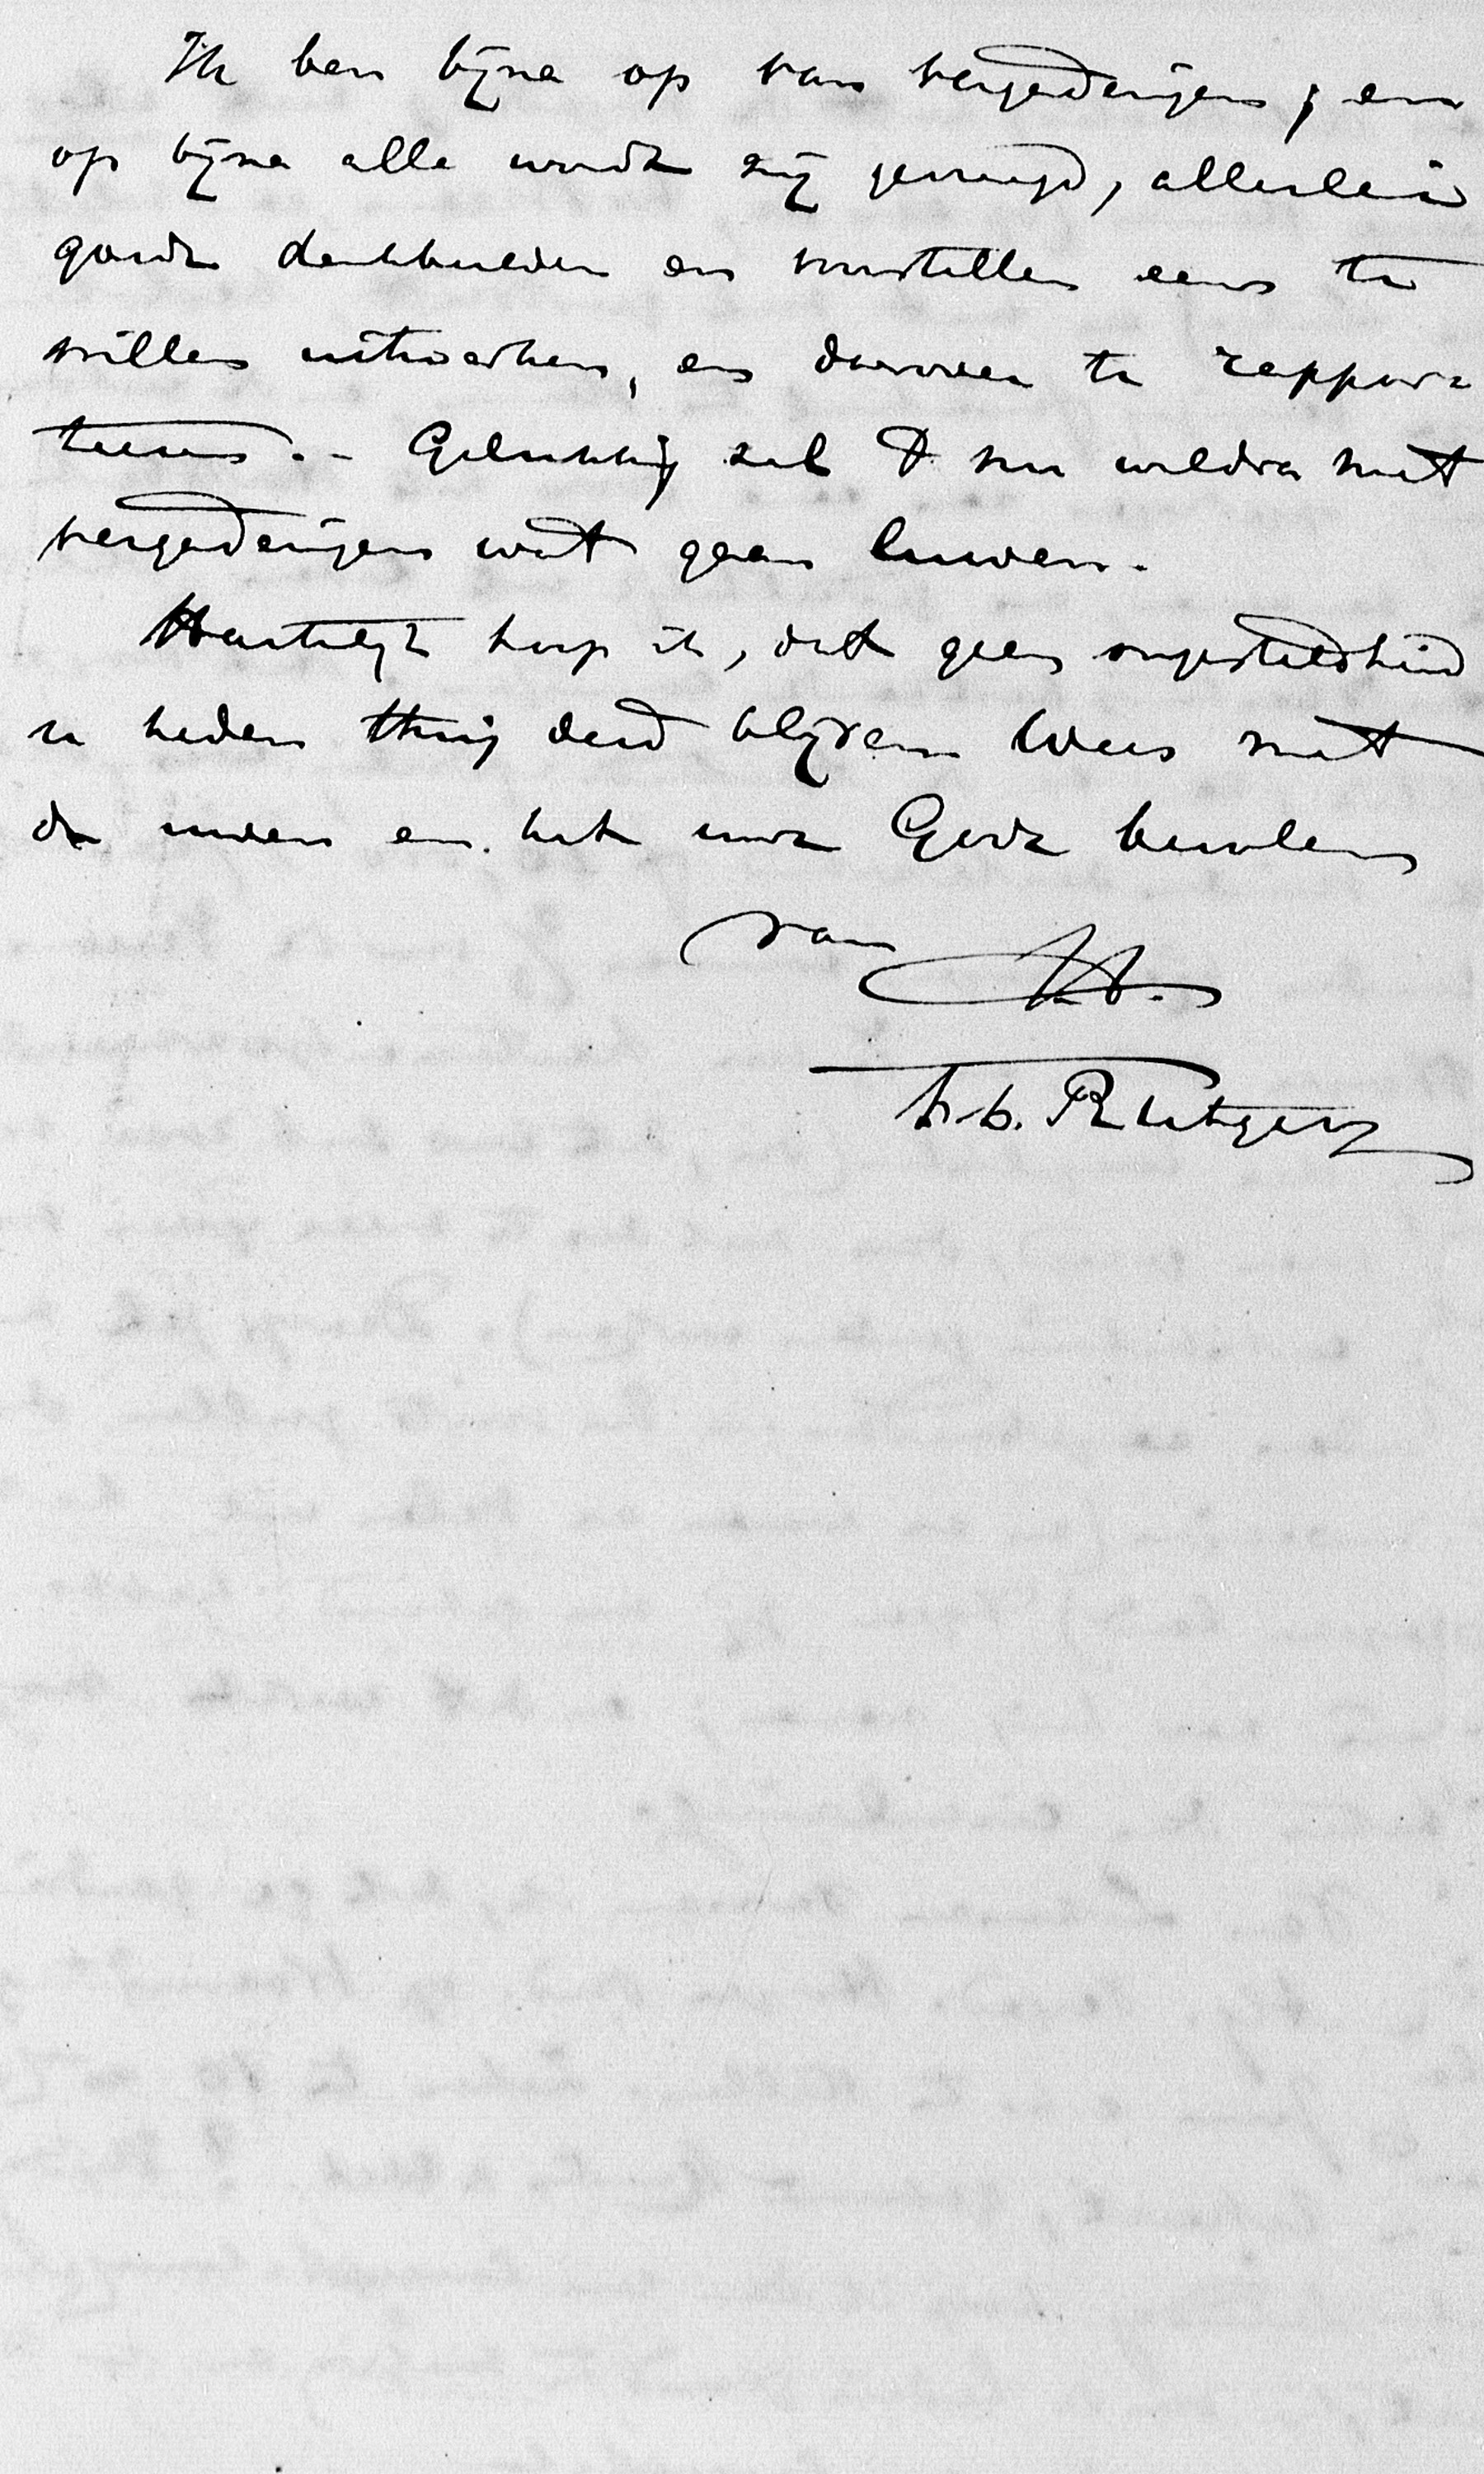 Ik ben bijna op van vergaderingen; en
op bijna alle wordt mij gevraagd, allerlei
goede denkbeelden en voorstellen eens te
willen uitwerken, en daarover te rappor-
teeren. - Gelukkig zal 't nu weldra met
vergaderingen wat gaan luwen.
Hartelijk hoop ik, dat geen ongesteldheid
u heden thuis deed blijven. Wees met
de uwen en het uwe Gode bevolen
van
F. L. Rutgers